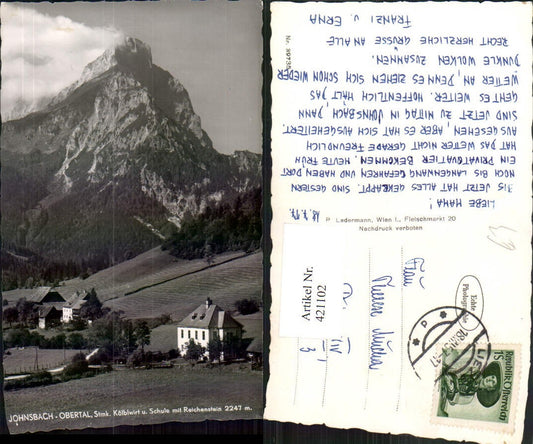 JOHNSBACH - OBERTAL, Stmk. Kölblwirt u. Schule mit Reichenstein 2247 m.
LIEBE MAMA!
BIS JETZT HAT ALLES GEKLAPPT. SIND GESTERN
NOCH BIS LANGENWANG GEFAHREN UND HABEN DORT
EIN PRIVATQUATIER BEKOMMEN. HEUTE FRÜH
HAT DAS WETTER NICHT GERADE FREUNDLICH
AUSGESEHEN, ABER ES HAT SICH AUSGEHEITERT.
SIND JETZT ZU MITAG IN JOHNSBACH, DANN
GEHT ES WEITER. HOFFENTLICH HÄLT DAS
WETTER AN, DENN ES ZIEHEN SICH SCHON WIEDER
DUNKLE WOLKEN ZUSAMMEN.
RECHT HERZLICHE GRÜSSE AN ALLE
FRANZI U. ERNA
Nr.
P. Ledermann, Wien I., Fleischmarkt 20
Nachdruck verboten
Echte
Photographie
Frau
Wien
Republik Österreich
1S
Artikel Nr.
421102